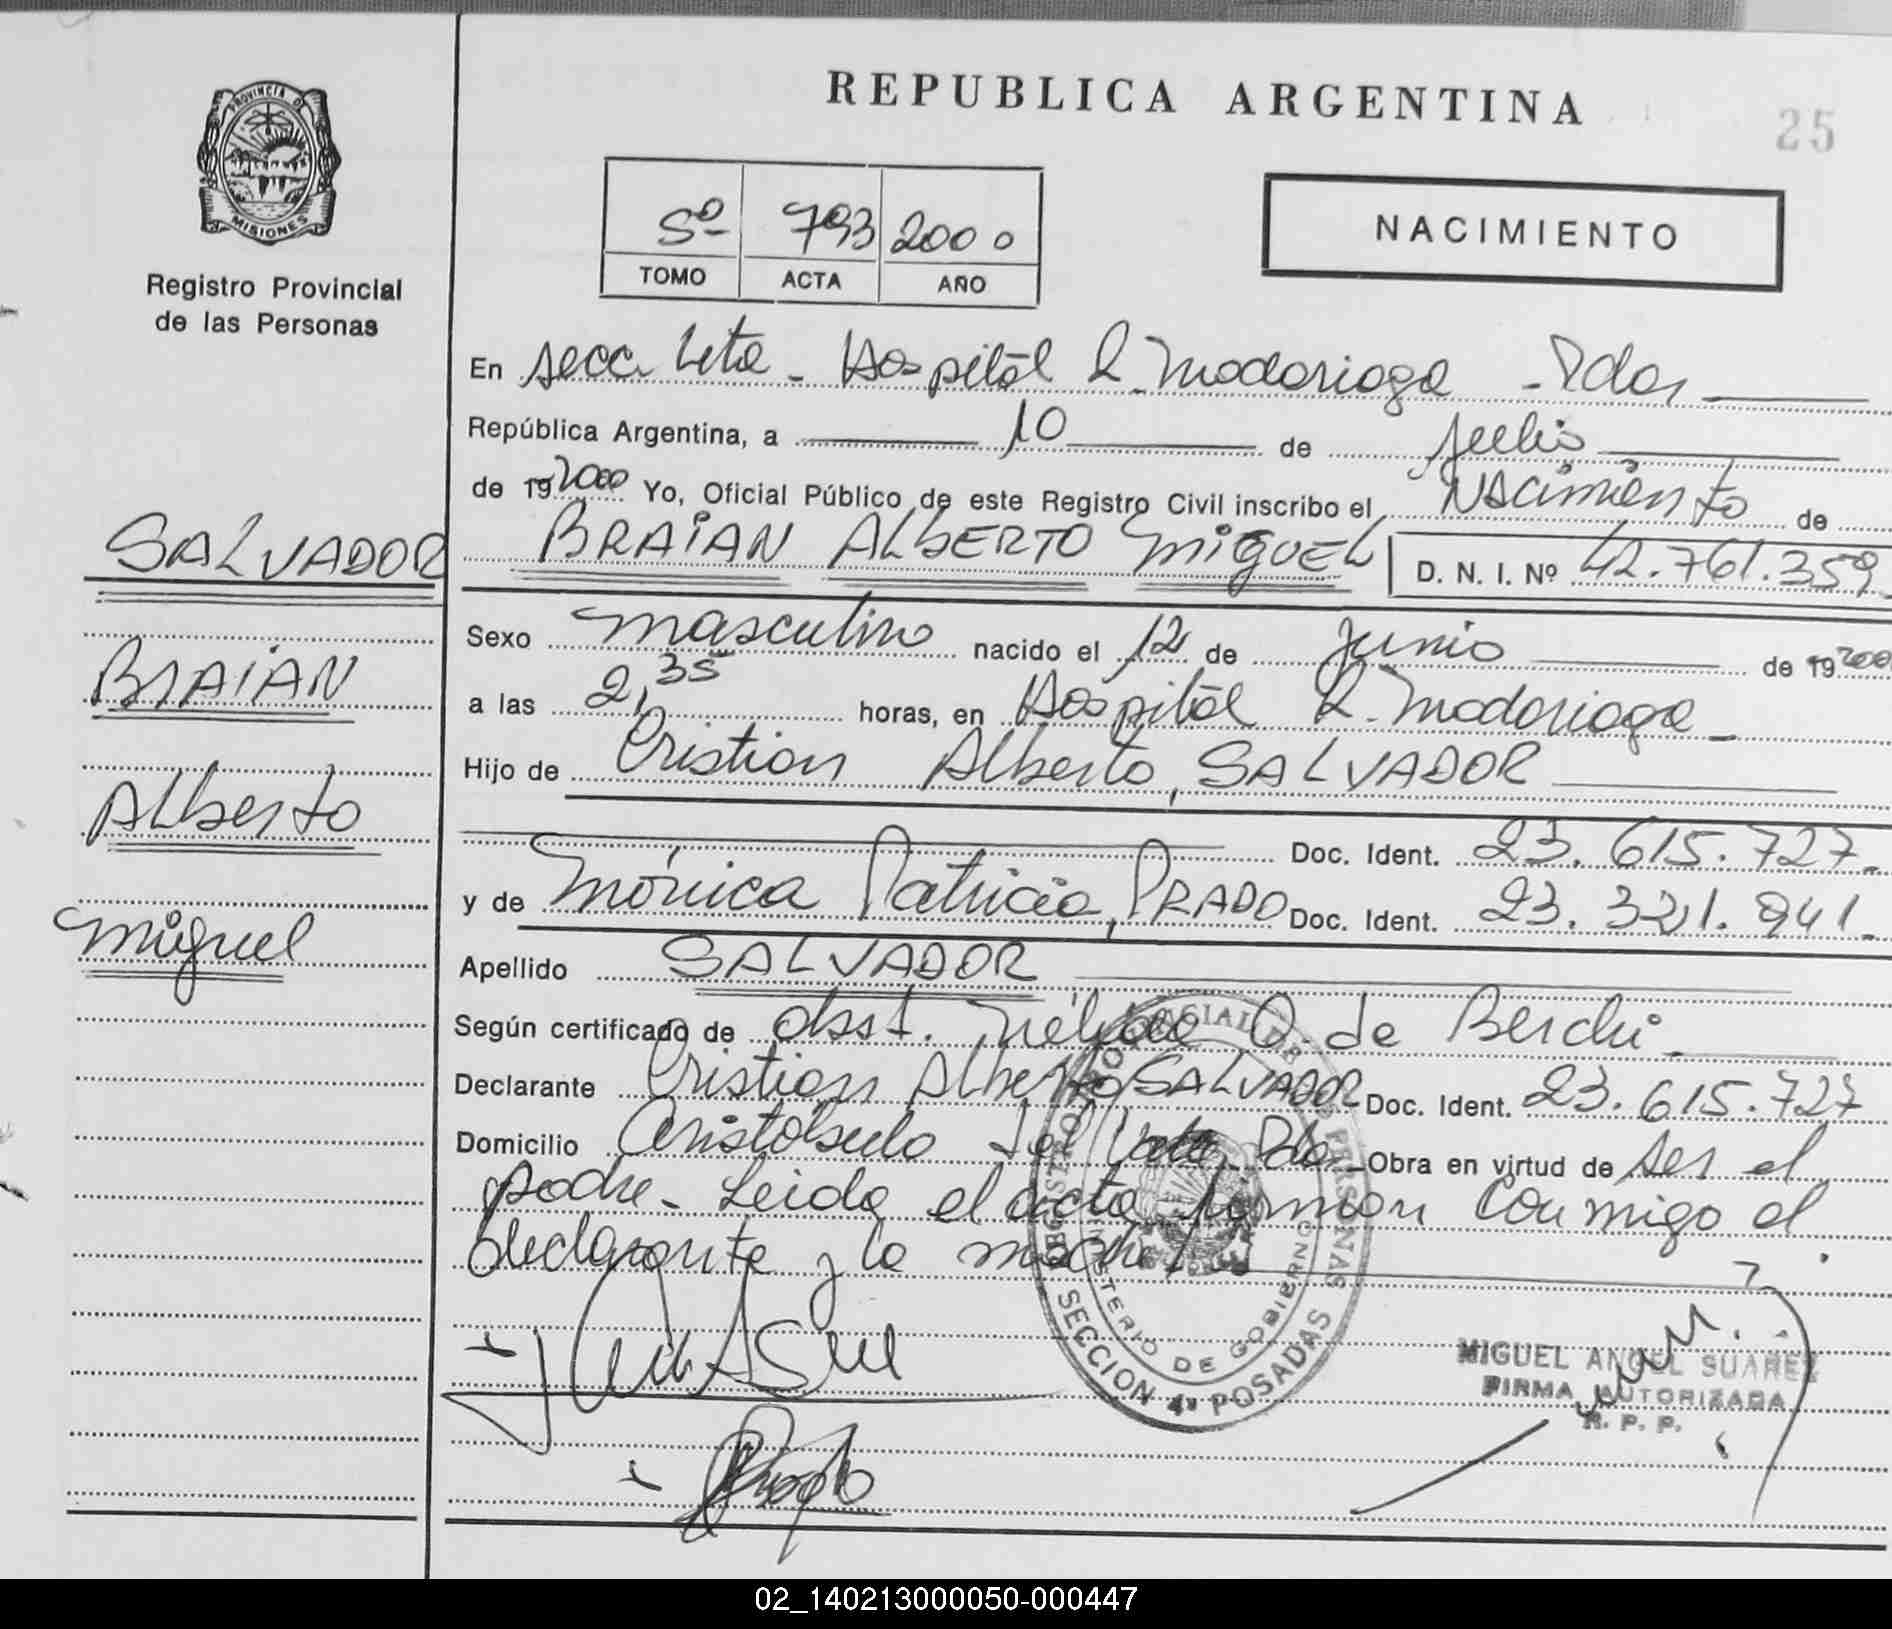 REPUBLICA ARGENTINA
25
PROVINCIA D
MISIONES
Registro Provincial
de las Personas
5º 793 2000
TOMO ACTA AÑO
NACIMIENTO
En Secc. 4ta - Hospital R. Madariaga - Pdas
República Argentina, a 10 de Julio
de 19 2000 Yo, Oficial Público de este Registro Civil inscribo el Nacimiento de
BRAIAN ALBERTO MIGUEL D. N. I. Nº 42.761.359
SALVADOR
BRAIAN
Alberto
Miguel
Sexo masculino nacido el 12 de Junio de 19 2000
a las 2,35 horas, en Hospital R. Madariaga -
Hijo de Cristian Alberto, SALVADOR
Doc. Ident. 23.615.727.
y de Mónica Patricia, PRADO Doc. Ident. 23.321.941.
Apellido SALVADOR
Según certificado de obst. Nélida O. de Berchi
Declarante Cristian Alberto SALVADOR Doc. Ident. 23.615.727
Domicilio Aristóbulo del Valle, Pdas - Obra en virtud de ser el
padre - Leida el acta firman conmigo el
declarante y la madre
REGISTRO PROVINCIAL DE LAS PERSONAS
MINISTERIO DE GOBIERNO
SECCION 4ª POSADAS
MIGUEL ANGEL SUAREZ
FIRMA AUTORIZADA
R. P. P.
02_140213000050-000447